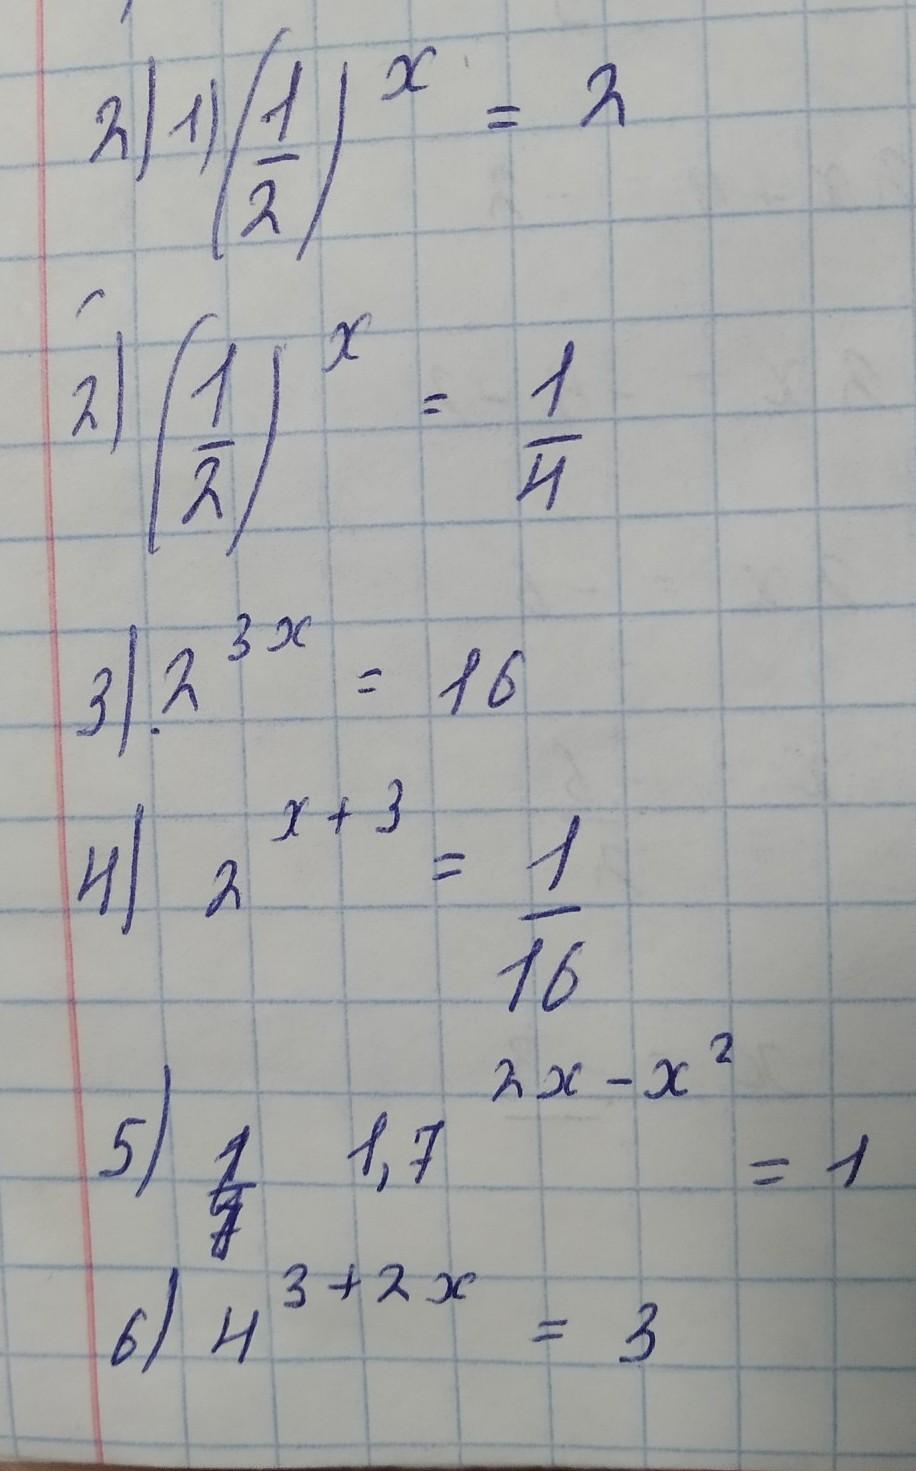 2) 1) (1/2)^x = 2
2) (1/2)^x = 1/4
3) 2^{3x} = 16
4) 2^{x+3} = 1/16
5) 1,7^{2x-x^2} = 1
6) 4^{3+2x} = 3